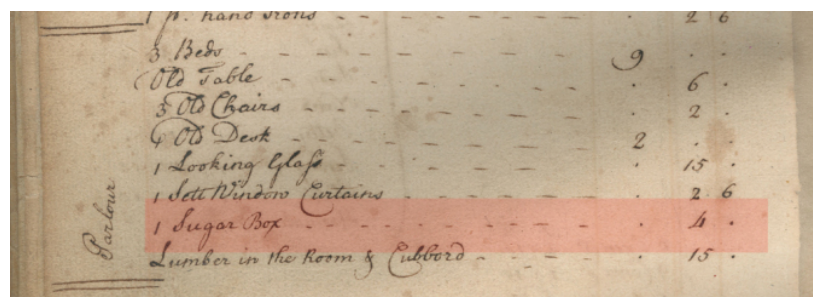 1 p. hand Irons - - - - - - . 2 6
3 Beds - - - - - - - 9 . .
Old Table - - - - - - - . 6 .
3 Old Chairs - - - - - - . 2 .
1 Old Desk - - - - - - - 2 . .
1 Looking Glass - - - - - - . 15 .
1 Sett Window Curtains - - - - - . 2 6
1 Sugar Box - - - - - - - . 4 .
Lumber in the Room & Cubbord - - - - . 15 .
Parlour